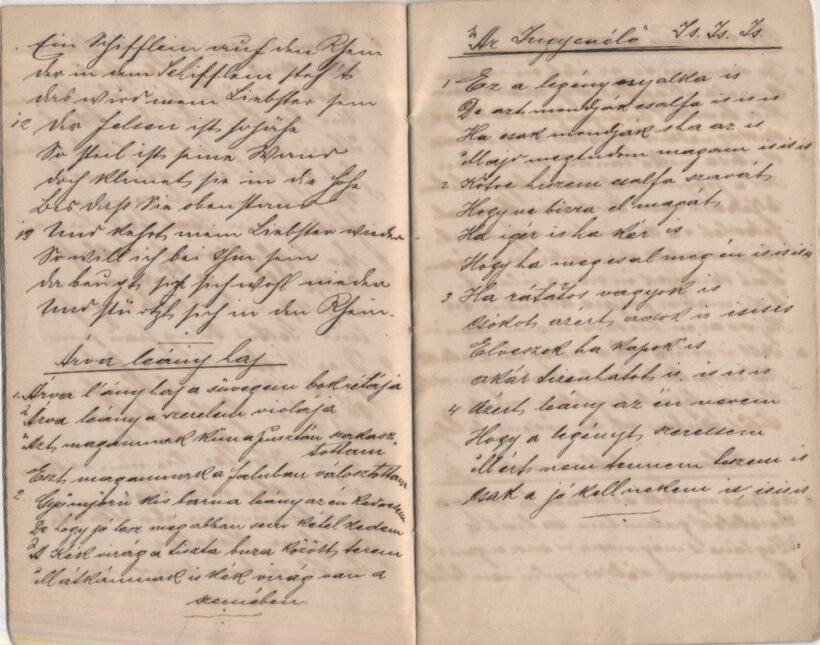 Ein Schifflein auf den Rhein
der in dem Schifflein steh't
das wird mein Liebster sein
12 Der Felsen ist so hohe
So steil ist seine Wand
doch klimet sie in die Höhe
bis dass Sie oben stand
13 Und kehrt mein Liebster wieder
So will ich bei Ihm sein
da beugt sich wohl nieder
Und stürtzt sich in den Rhein.
Árva leány haj
1. Árva l'ány haj a süvegem bokrétája
Árva leány a szerelem violája
Azt magamnak kün a pusztán szakasz-
tottam
Ezt magamnak a faluban választottam
2. kis barna leány az én kedvesem
De hogy jó lesz még abban sem kételkedem
A kék virág a tiszta buza között terem
Mátkámnak is kék virág van a
szemében.
"Az Ingyenélő" Is. Is. Is.
1 Ez a legény nyalka is
De azt mondják csalfa is is is
Ha csak mondják s ha az is
Majd megtudom magam is is is
2 Kétve hiszem csalfa szavát
Hogy ne bizza el magát
Ha igér is ha kér is
Hogy ha megcsal meg én is is is
3 Ha rátátos vagyok is
Csókot azért adok is is is is
Elveszek ha kapok is
akár tizenhatot is. is is is
4 Azért leány az én nevem
Hogy a legényt szeressem
Mért nem tennem teszem is
Csak a jó kell nekem is, is is is